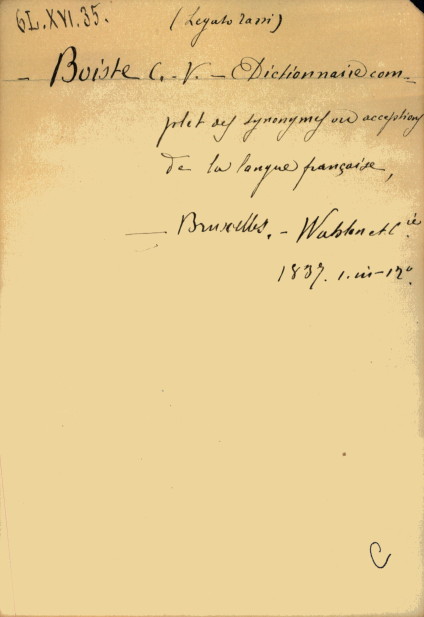 6L.XVI.35. (Legato Zassi)
— Boiste C.-V. — Dictionnaire com-
plet des synonymes ou acceptions
de la langue française,
— Bruxelles. — Wahlen et Cie.
1837. 1. in-12º.
C